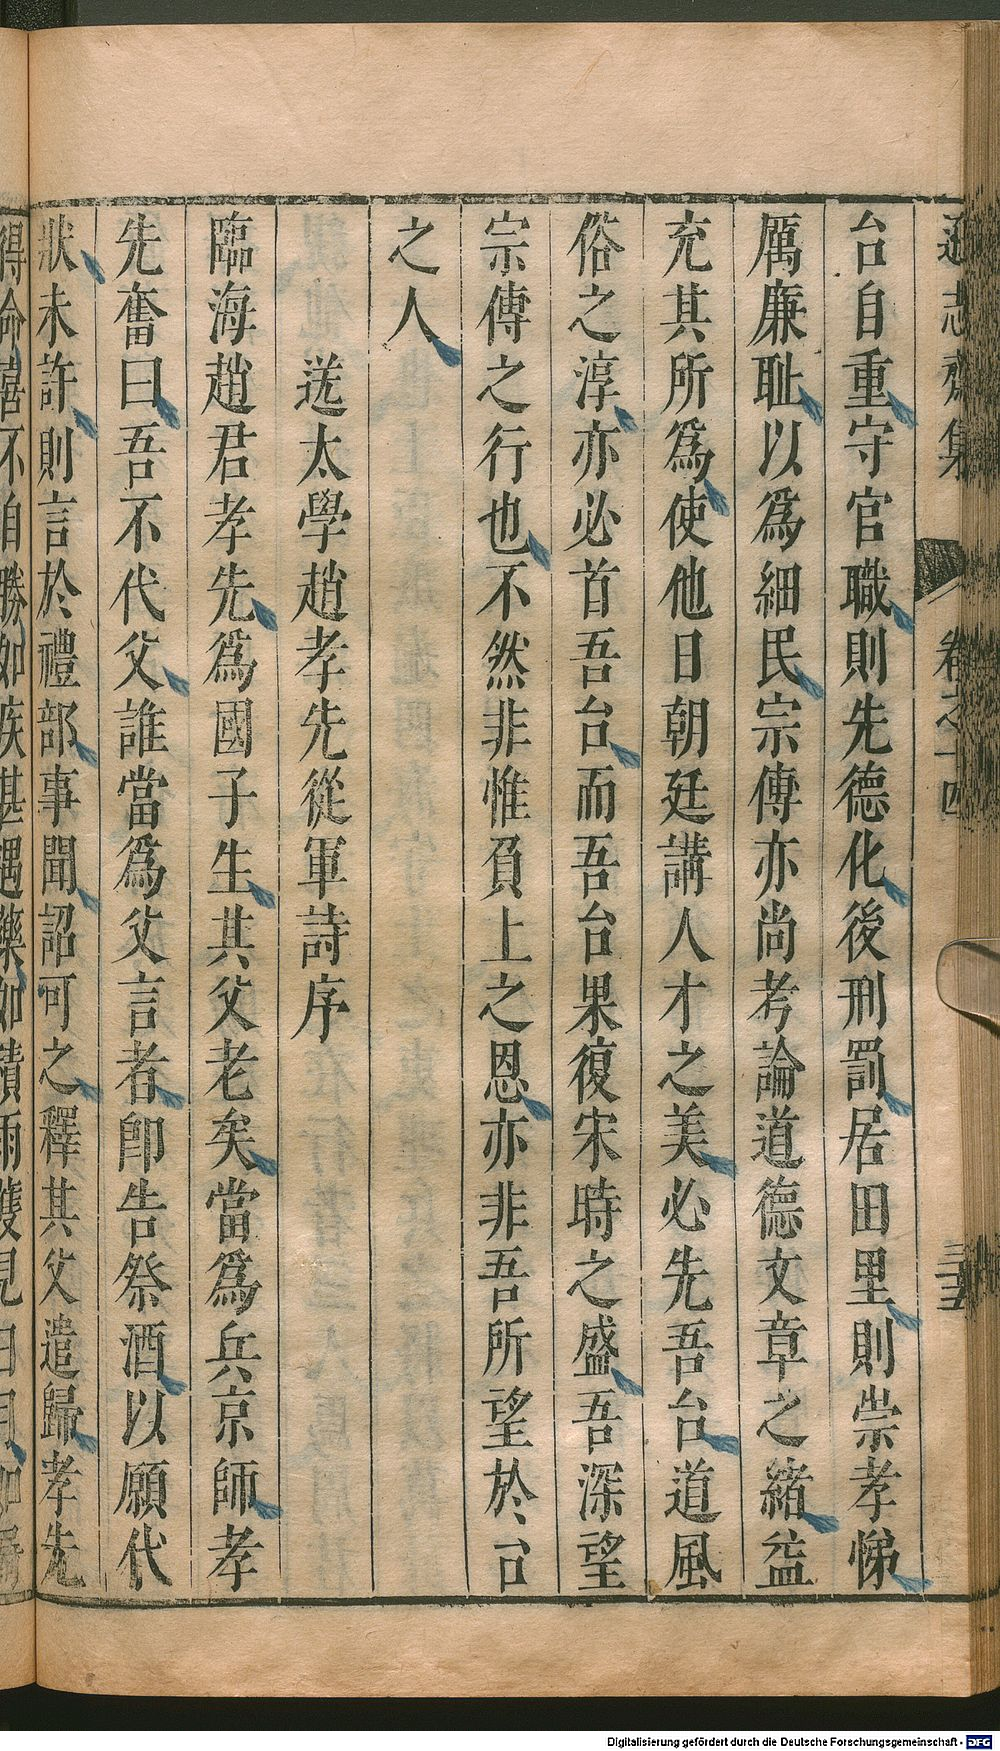 遜志齋集 卷之十四
台自重守官職則先德化後刑罰居田里則崇孝悌
厲廉耻以爲細民宗傳亦尚考論道德文章之緒益
充其所爲使他日朝廷講人才之美必先吾台道風
俗之淳亦必首吾台而吾台果復宋時之盛吾深望
宗傳之行也不然非惟負上之恩亦非吾所望於台
之人
送太學趙孝先從軍詩序
臨海趙君孝先爲國子生其父老矣當爲兵京師孝
先奮曰吾不代父誰當爲父言者卽告祭酒以願代
狀未許則言於禮部事聞詔可之釋其父遣歸孝先
得命喜不自勝如疾甚遇藥如積雨𫉬見日月如
Digitalisierung gefördert durch die Deutsche Forschungsgemeinschaft - DFG